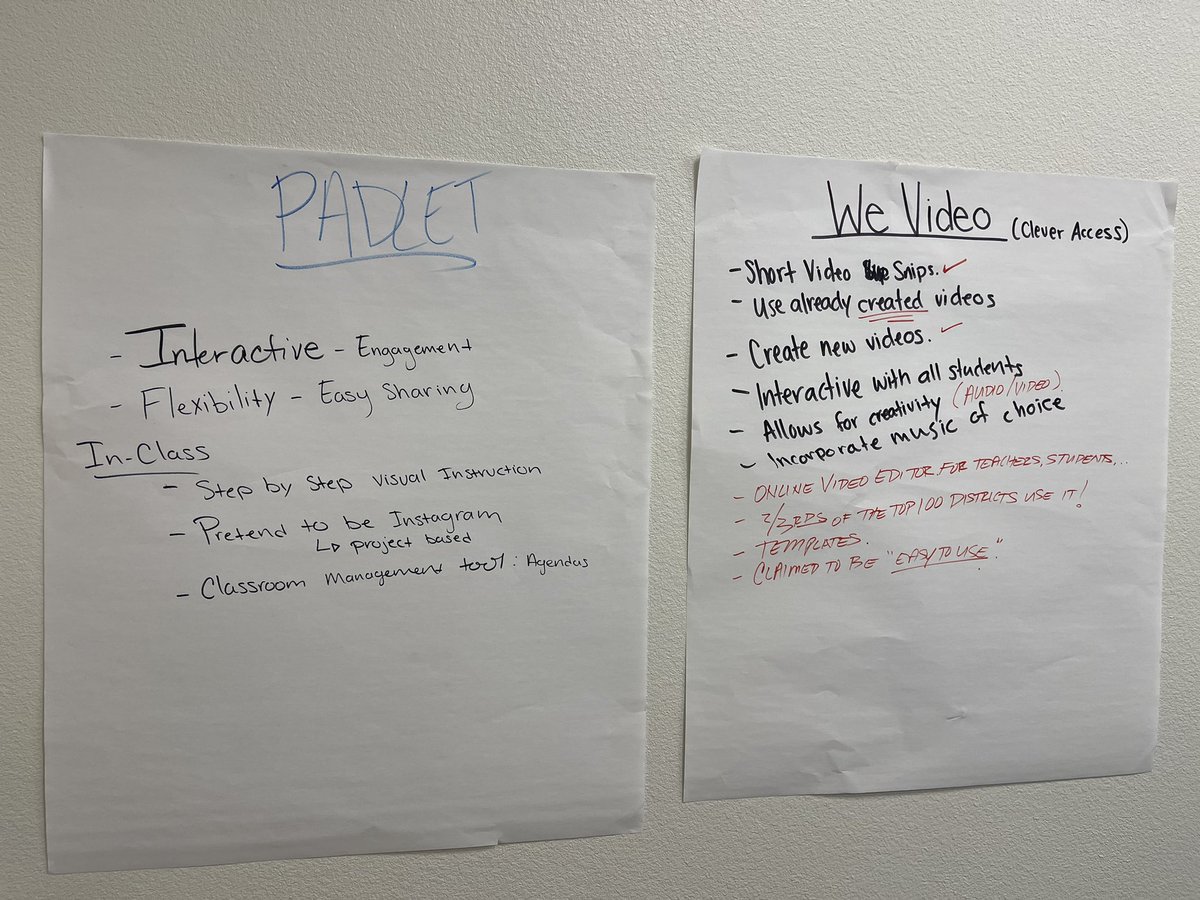 PADLET
- Interactive - Engagement
- Flexibility - Easy Sharing
In-Class
- Step by Step visual Instruction
- Pretend to be Instagram
↳ project based
- Classroom management tool: Agendas
We Video (Clever Access)
- Short Video Snips. ✓
- Use already created videos
- Create new videos. ✓
- Interactive with all students
(AUDIO/VIDEO).
- Allows for creativity
- Incorporate music of choice
- ONLINE VIDEO EDITOR FOR TEACHERS, STUDENTS,...
- 2/3RDS OF THE TOP 100 DISTRICTS USE IT!
- TEMPLATES.
- CLAIMED TO BE "EASY TO USE".